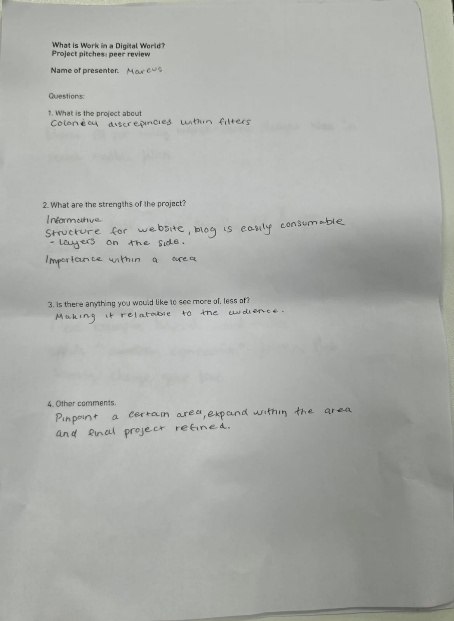 What is Work in a Digital World?
Project pitches: peer review
Name of presenter. Marcus
Questions:
1. What is the project about
discrepincies within filters
2. What are the strengths of the project?
Informative
Structure for website, blog is easily consumable
- Layers on the side.
Importance within a area
3. Is there anything you would like to see more of, less of?
Making it relatable to the audience.
4. Other comments.
Pinpoint a certain area, expand within the area
and final project refined.